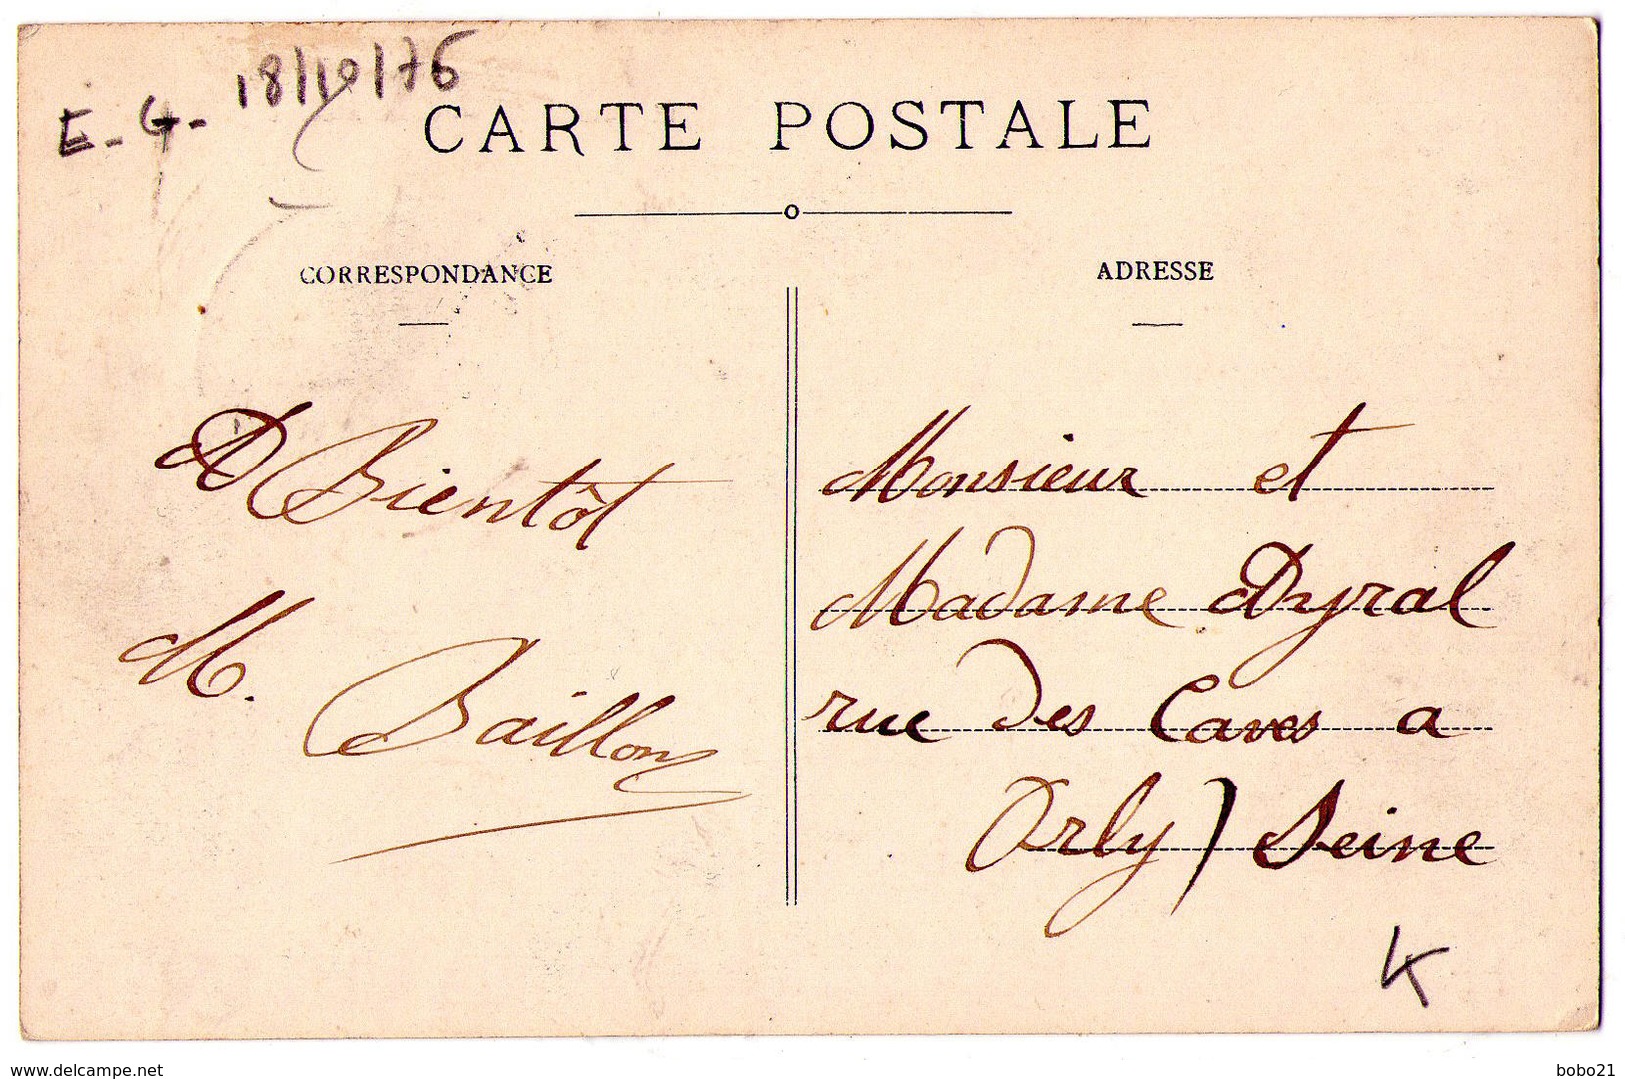 E-G- 18/10/76
CARTE POSTALE
CORRESPONDANCE
ADRESSE
A Bientôt
M. Baillon
Monsieur et
Madame Dyral
rue des Caves a
Orly) Seine
K
www.delcampe.net
bobo21